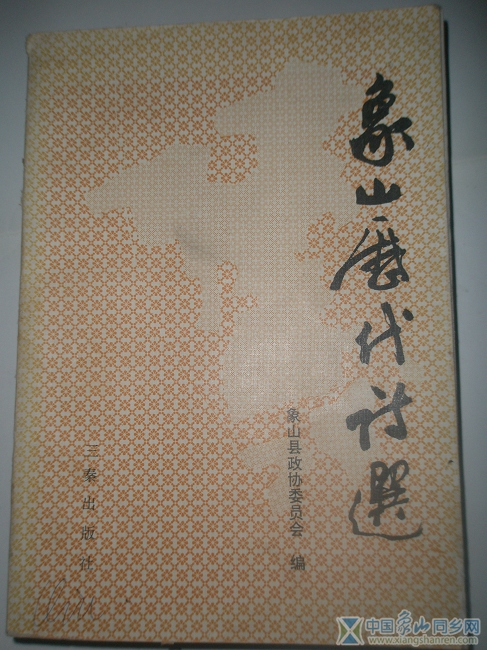 象山历代诗選
象山县政协委员会 编
三秦出版社
中国象山同乡网
www.xiangshanren.com